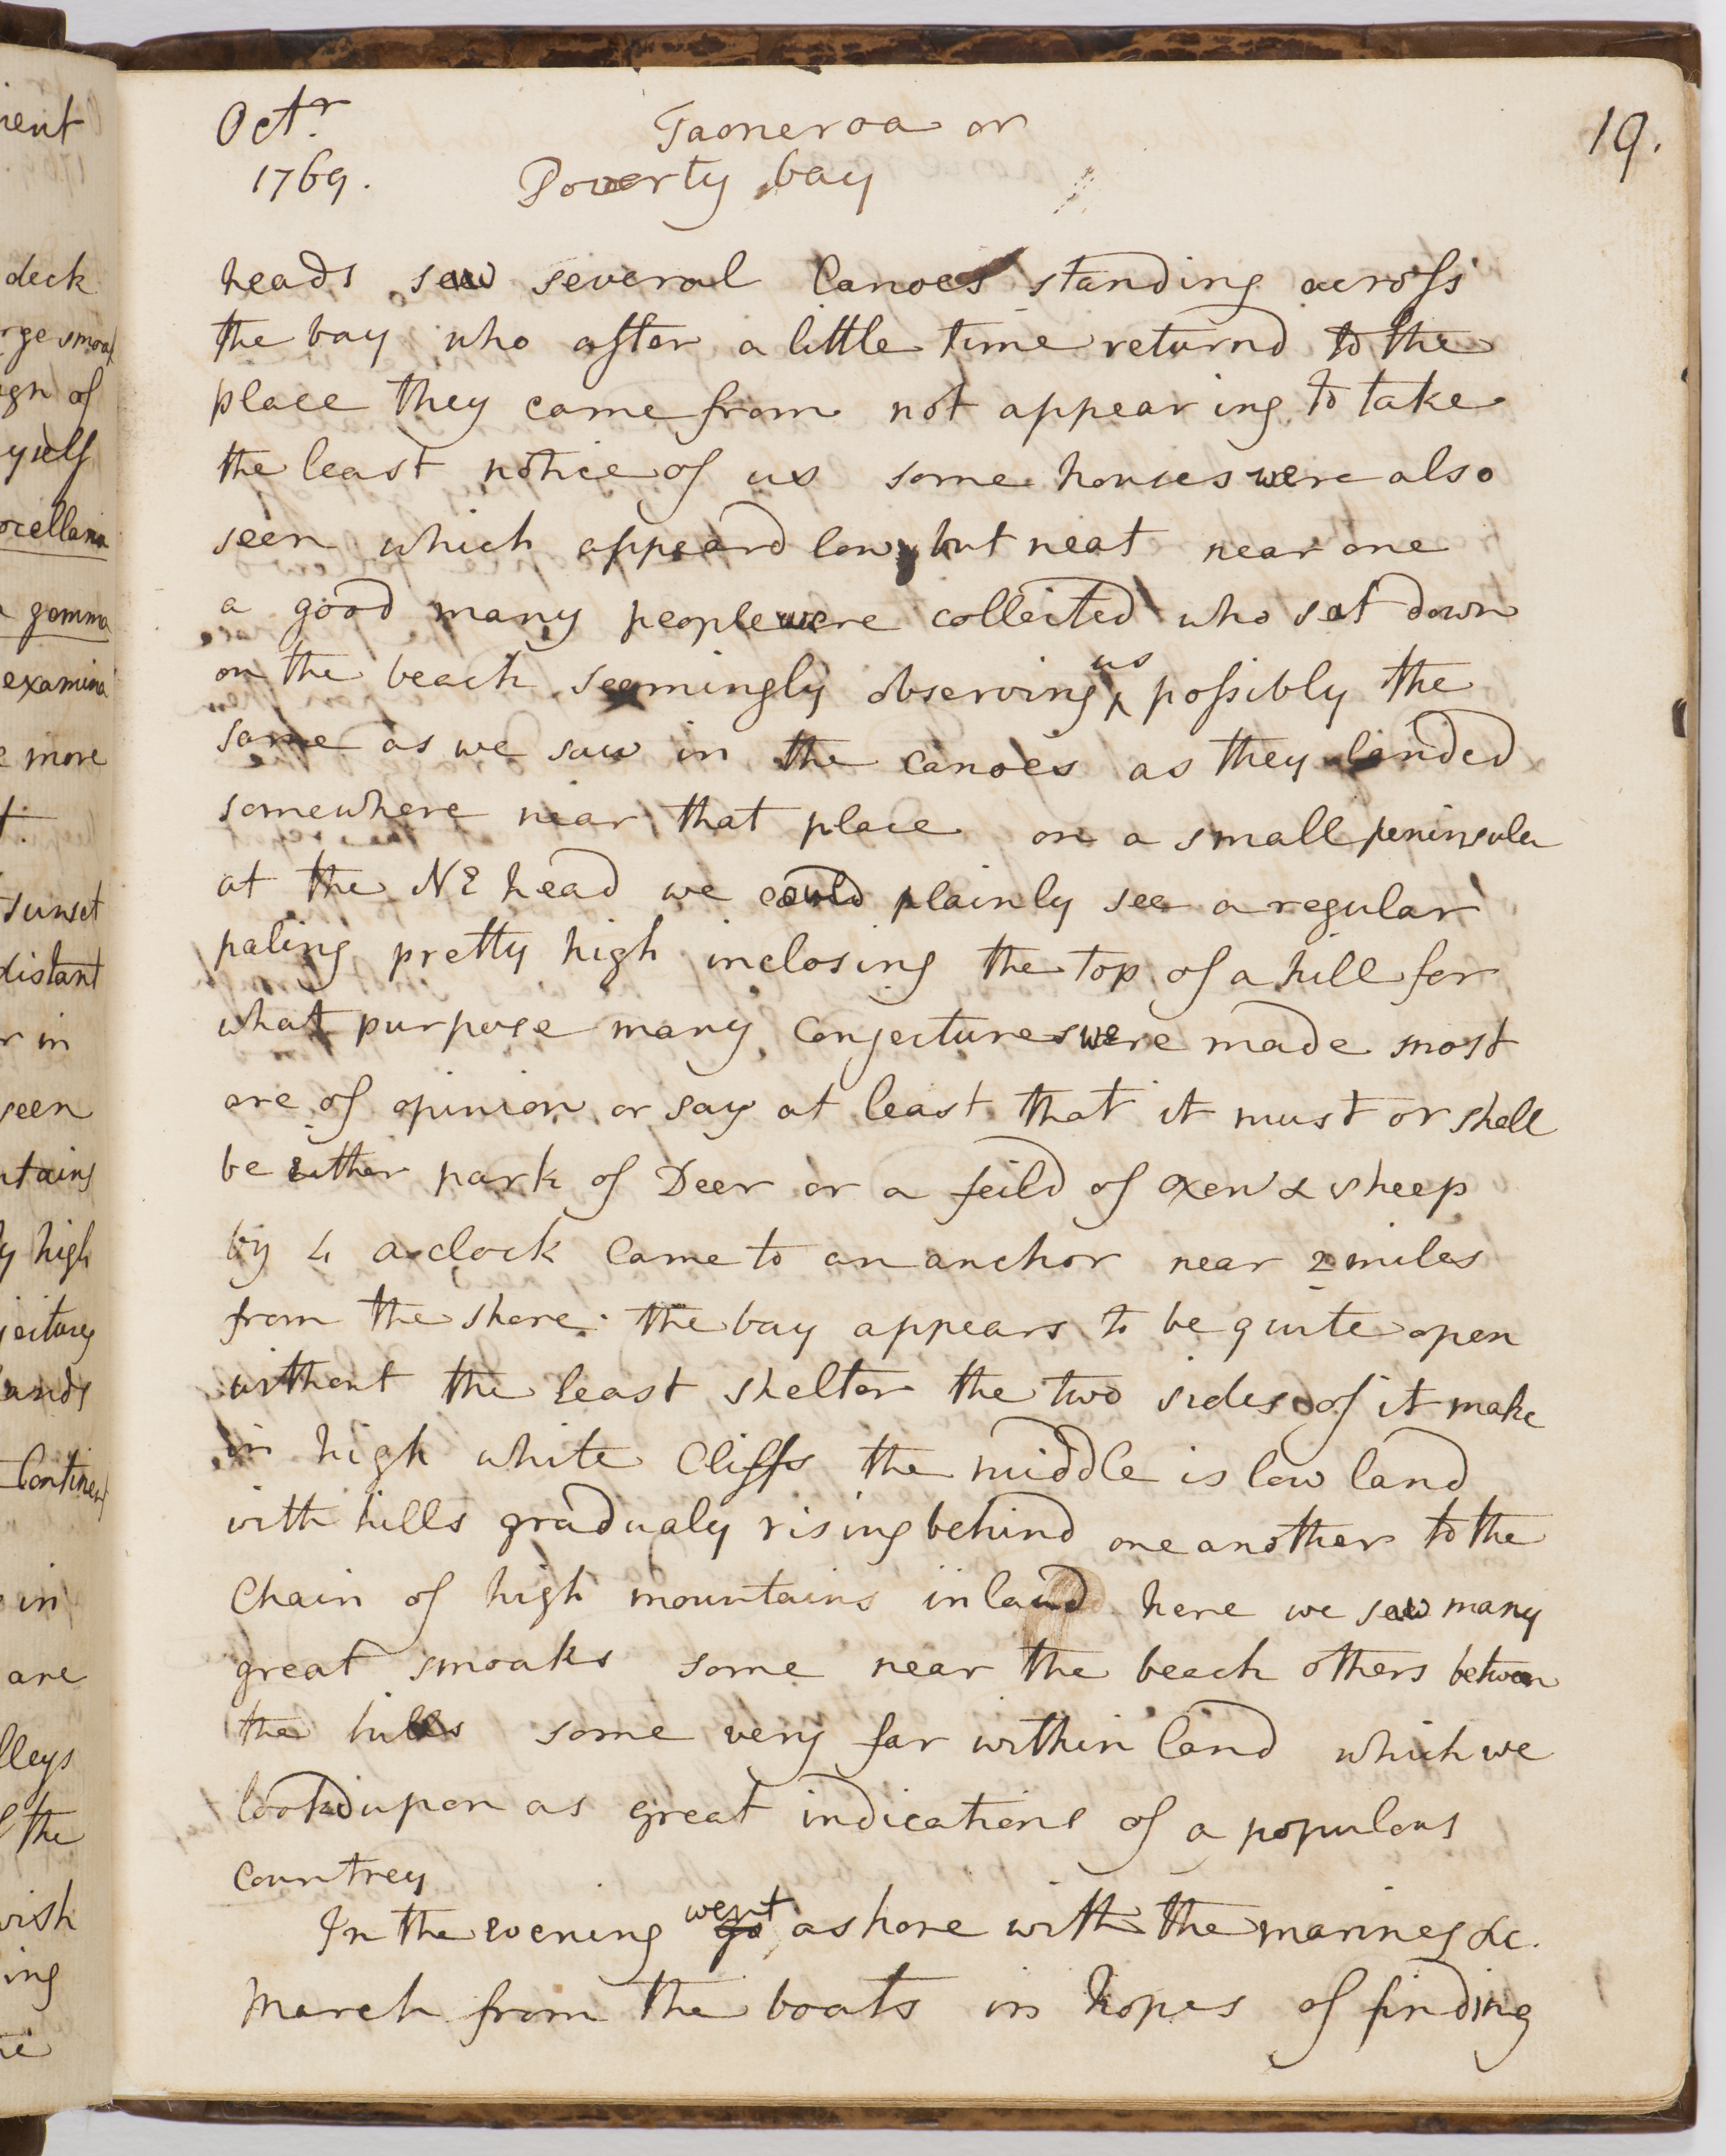 ient
deck
rge smoak
ign of
yself
ocellaria
gemma
examina
e more
t.
sunset
distant
r in
seen
ntains
y high
jectures
ands
Continent
in
are
lleys
f the
wish
ing
Octr. Taoneroa or 19.
1769. Poverty bay
heads saw several Canoes standing across
the bay who after a little time returnd to the
place they came from not appearing to take
the least notice of us some houses were also
seen which appeard low, but neat near one
a good many people were collected who sat down
on the beach seemingly observing us possibly the
same as we saw in the canoes as they landed
somewhere near that place on a small peninsula
at the NE head we could plainly see a regular
paling pretty high inclosing the top of a hill for
what purpose many conjectures were made most
are of opinion or say at least that it must or shall
be either park of Deer or a feild of oxen & sheep
by 4 o clock came to an anchor near 2 miles
from the shore. the bay appears to be quite open
without the least shelter the two sides of it make
in high white Cliffs the middle is low land
with hills gradualy rising behind one another to the
Chain of high mountains inland here we saw many
great smoaks some near the beach others between
the hills some very far within land which we
lookd upon as great indications of a populous
countrey
In the evening went go ashore with the marines &c.
March from the boats in hopes of finding